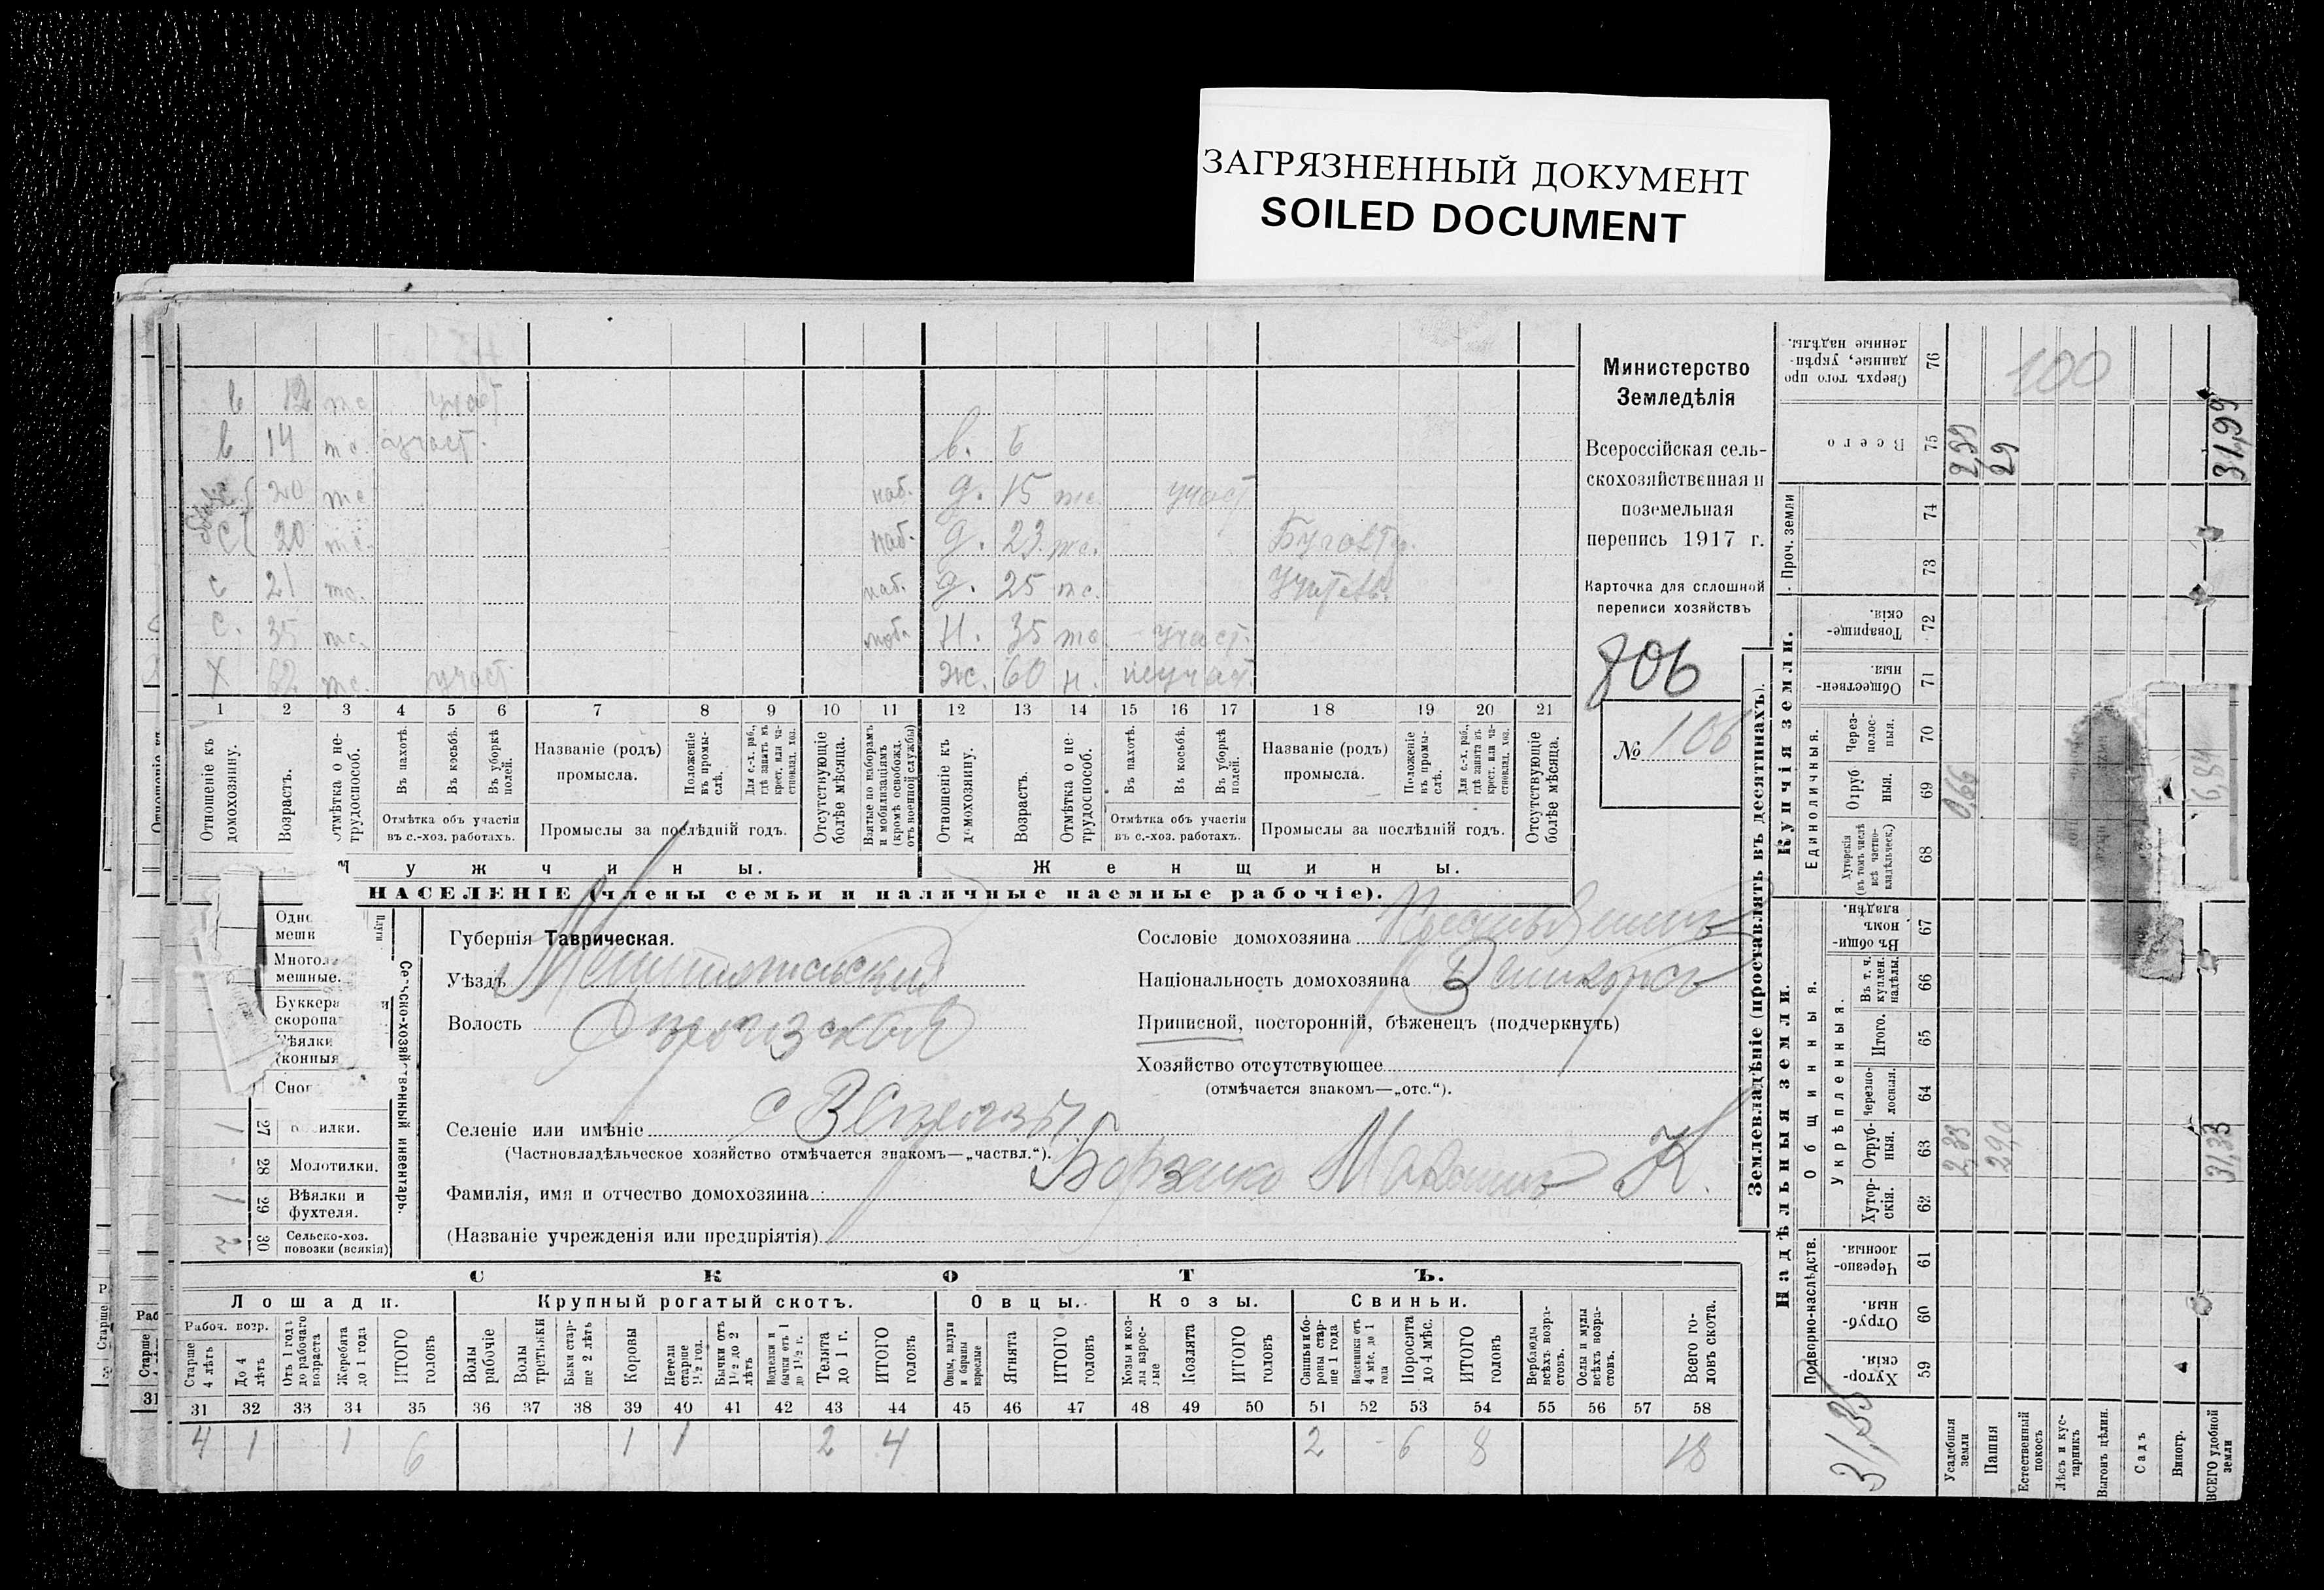 ЗАГРЯЗНЕННЫЙ ДОКУМЕНТ
SOILED DOCUMENT
в 12 тс участ
в 14 тс. участ. в. 6
20 тс наб. д. 15 тс участ
с 20 тс. наб. д. 23 тс.
с 21 тс. наб. д. 25 тс. Учитель.
с. 35 тс. моб. н. 35 тс участ.
х 62 тс. участ. ж. 60 н. неучаст.
1 2 3 4 5 6 7 8 9 10 11 12 13 14 15 16 17 18 19 20 21
Отношеніе къ домохозяину.
Возрастъ.
Отмѣтка о не-трудоспособ.
Въ пахотѣ.
Въ косьбѣ.
Въ уборкѣ полей.
Отмѣтка объ участіи въ с.-хоз. работахъ.
Названіе (родъ) промысла.
Положеніе въ промы-слѣ.
Для с.-х. раб., гдѣ занятъ въ крест. или ча-стновлад. хоз.
Промыслы за послѣдній годъ.
Отсутствующіе болѣе мѣсяца.
Взятые по наборамъ и мобилизаціямъ (кромѣ освобожд. отъ военной службы)
Отношеніе къ домохозяину.
Возрастъ.
Отмѣтка о не-трудоспособ.
Въ пахотѣ.
Въ косьбѣ.
Въ уборкѣ полей.
Отмѣтка объ участіи въ с.-хоз. работахъ.
Названіе (родъ) промысла.
Положеніе въ промы-слѣ.
Для с.-х. раб., гдѣ занята въ крест. или ча-стновлад. хоз.
Промыслы за послѣдній годъ.
Отсутствующіе болѣе мѣсяца.
у ж ч и н ы. Ж е н щ и н ы.
НАСЕЛЕНІЕ (члены семьи и наличные наемные рабочіе).
Министерство
Земледѣлія
Всероссійская сель-
скохозяйственная и
поземельная
перепись 1917 г.
Карточка для сплошной
переписи хозяйствъ
806
№ 106
Губернія Таврическая.
Уѣздъ Мелитопольский
Волость
Селеніе или имѣніе
(Частновладѣльческое хозяйство отмѣчается знакомъ—„частвл.“).
Фамилія, имя и отчество домохозяина: Борзенко Максим К.
(Названіе учрежденія или предпріятія)
Сословіе домохозяина Крестьянинъ
Національность домохозяина Великоросъ
Приписной, посторонній, бѣженецъ (подчеркнуть)
Хозяйство отсутствующее
(отмѣчается знакомъ—„отс.“).
Сельско-хозяйственный инвентарь.
Многол
мешные.
Буккера
(конныя
1 27
28 Молотилки.
1 29 Вѣялки и фухтеля.
2 30 Сельско-хоз. повозки (всякія)
С К О Т Ъ.
Лошади. Крупный рогатый скотъ. Овцы. Козы. Свиньи.
Рабоч. возр.
Старше 4 лѣтъ
До 4 лѣтъ
Отъ 1 года до рабочаго возраста
Жеребята до 1 года
ИТОГО головъ
Волы рабочіе
Волы третьяки
Быки стар-ше 2 лѣтъ
Коровы
Нетели старше 1½ год.
Бычки отъ 1½ до 2 лѣтъ
Нетелки и бычки отъ 1 до 1½ г.
Телята до 1 г.
ИТОГО головъ
Овцы, валухи и бараны взрослые
Ягнята
ИТОГО головъ
Козы и коз-лы взрос-лые
Козлята
ИТОГО головъ
Свиньи и бо-ровы стар-ше 1 года
Подсвинки отъ 4 мѣс. до 1 года
Поросята до 4 мѣс.
ИТОГО головъ
Верблюды всѣхъ возра-стовъ.
Ослы и мулы всѣхъ возра-стовъ.
Всего го-ловъ скота.
31 32 33 34 35 36 37 38 39 40 41 42 43 44 45 46 47 48 49 50 51 52 53 54 55 56 57 58
4 1 1 6 1 1 2 4 2 - 6 8 18
Землевладѣніе (проставлять въ десятинахъ).
Надѣльныя земли.
Купчія земли.
Проч. земли
Подворно-наслѣдств.
Общинныя.
Укрѣпленныя.
Единоличныя.
Хутор-скія. 59
Отруб-ныя. 60
Черезпо-лосныя. 61
Хутор-скія. 62
Отруб-ныя. 63
Черезпо-лосныя. 64
Итого. 65
Въ т. ч. куплен. надѣлы. 66
Въ общин-номъ владѣн. 67
Хуторскія (въ томъ числѣ всѣ частно-владѣльческ.) 68
Отруб ныя. 69
Через-полос-ныя. 70
Обществен-ныя. 71
Товарище-скія. 72
73
74
Всего 75
Сверхъ того про данные, укрѣп-ленные надѣлы. 76
Усадебныя земли
Пашня
Естественный покосъ
Лѣсъ и кус-тарникъ
Выгонъ цѣлин.
Садъ
Виногр.
ВСЕГО удобной земли
31,33
2,33 29,0 31,33
0,66
2,99 29 31,99
100